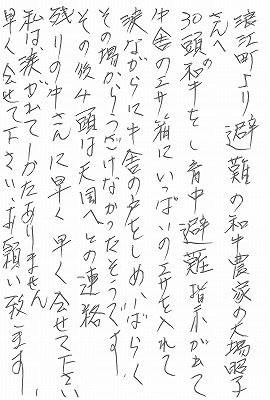 浪江町より避難の和牛農家の大場昭子
さんへ
30頭の和牛をし育中避難指示が出て
牛舎のエサ箱にいっぱいのエサを入れて
涙ながらに牛舎の戸をしめしばらく
その場からうごけなかったそうです
その後4頭は天国へとの連絡
残りの牛さんに早く早く会せて下さい
私は涙が出てしかたありません
早く会せて下さい、お願い致します、